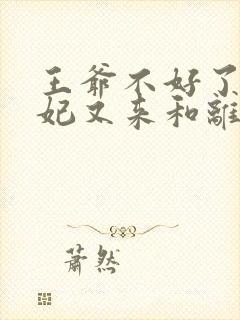 王爷不好了
妃又来和離
蕭然